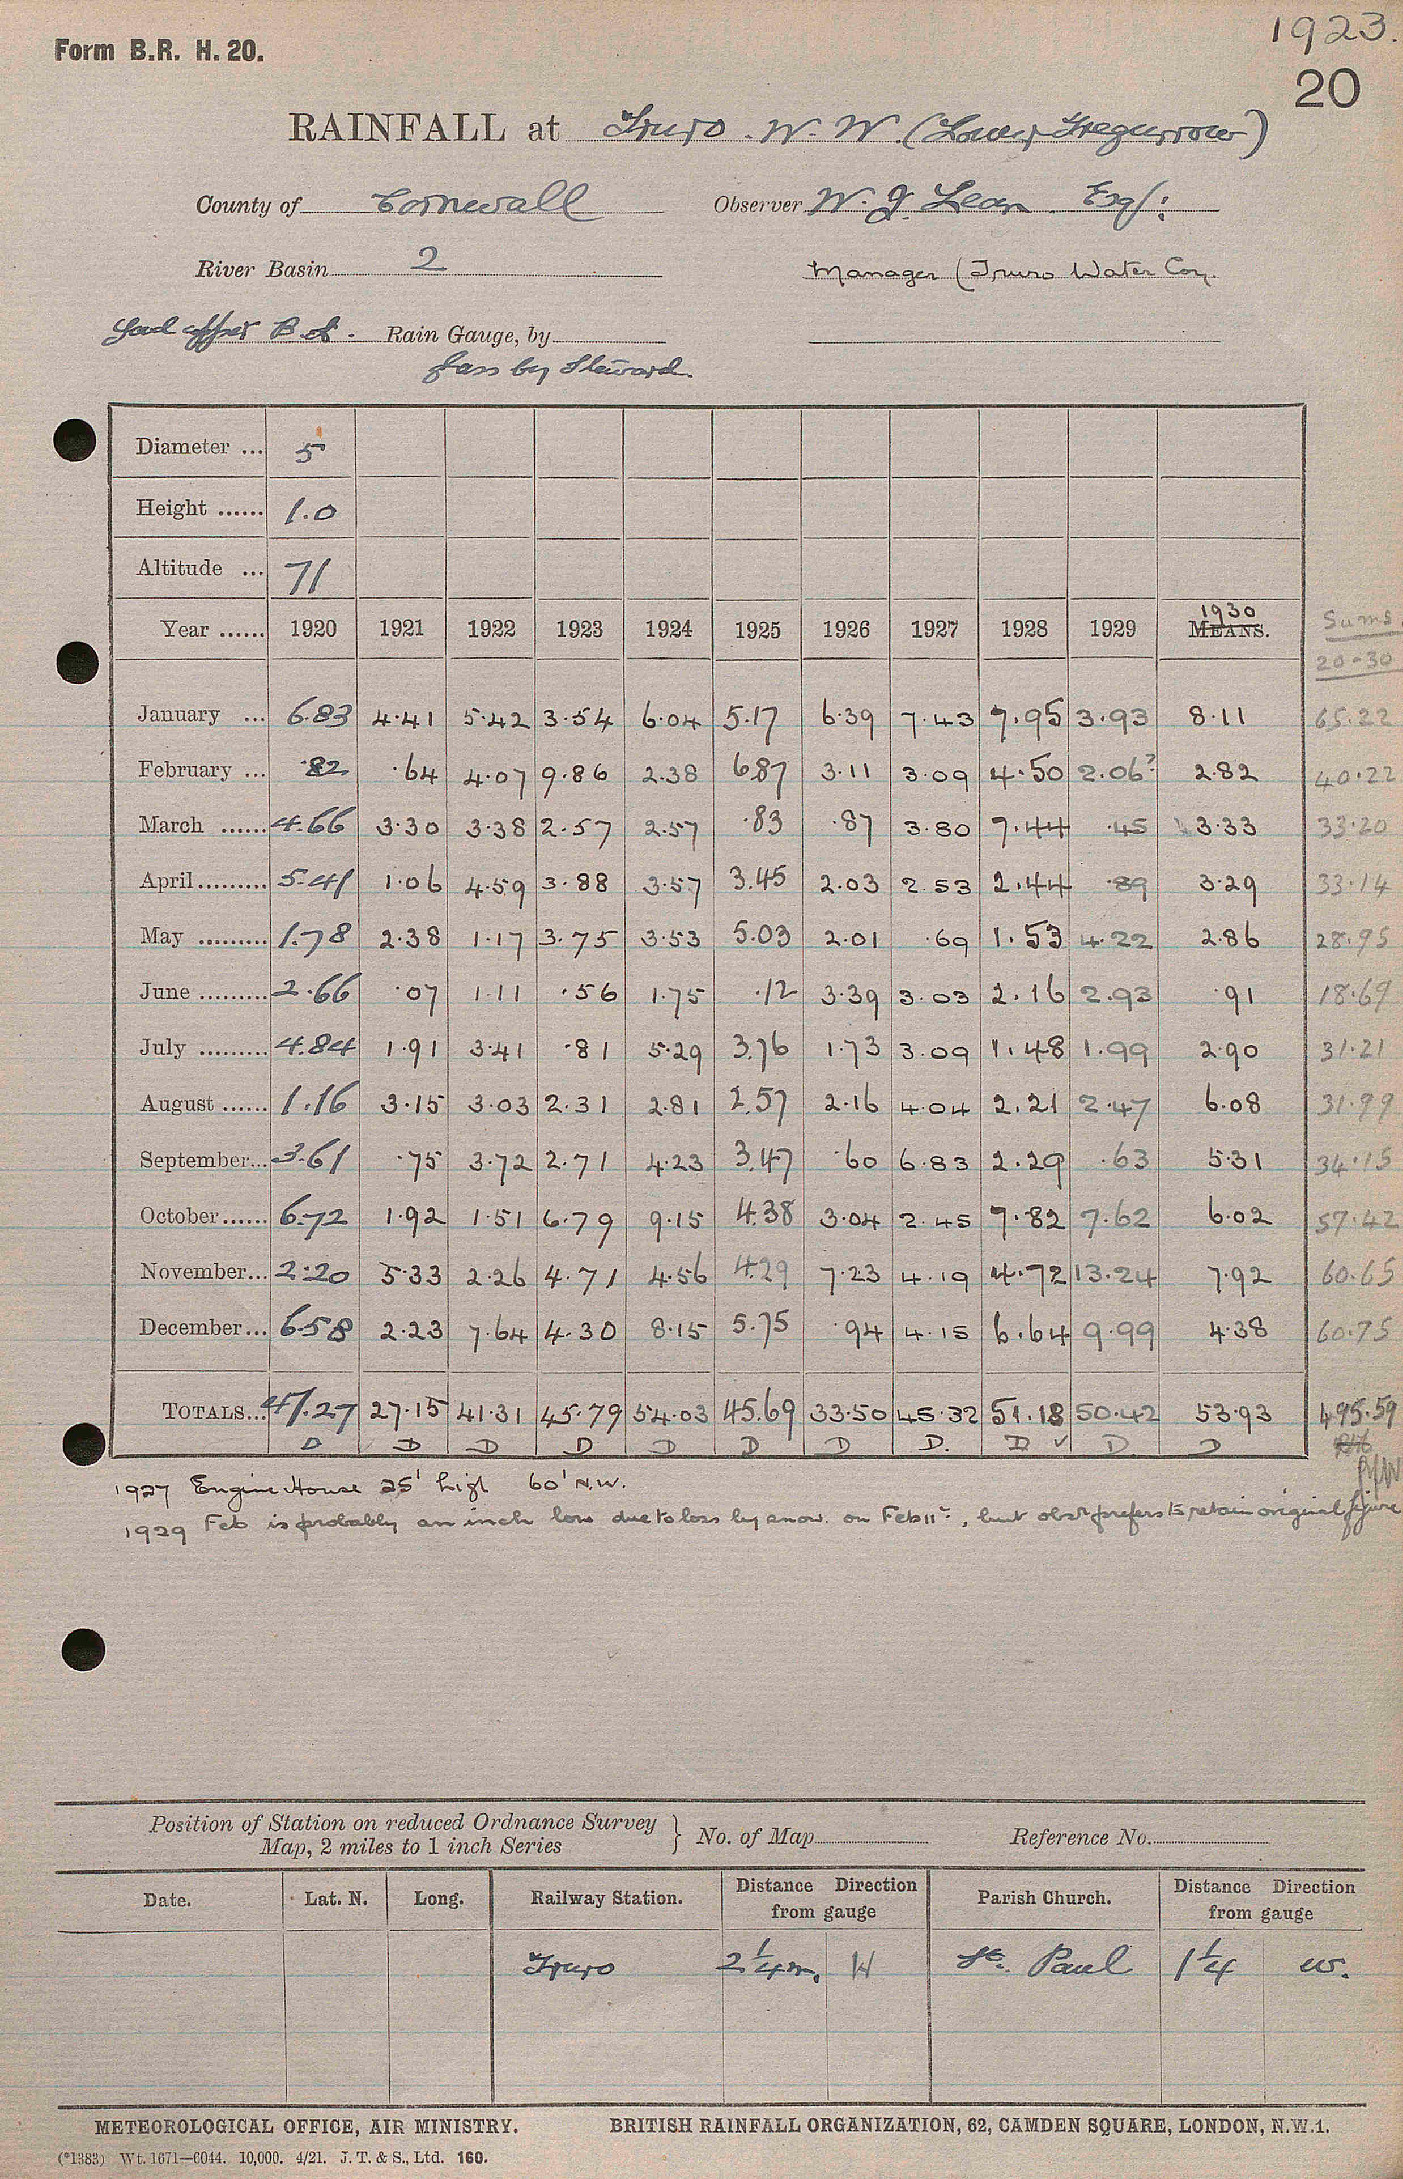 1923.
Form B.R. H. 20.
20
RAINFALL at Truro. W. W. (Lower Tregurrow)
County of Cornwall Observer W. J. Lean Esq:
River Basin 2 Manager (Truro Water Coy.
Rain Gauge, by
Glass by Steward.
Diameter ... 5
Height ...... 1.0
Altitude ... 71
Year ...... 1920 1921 1922 1923 1924 1925 1926 1927 1928 1929 1930 MEANS. Sums 20-30
January ... 6.83 4.41 5.42 3.54 6.04 5.17 6.39 7.43 7.95 3.93 8.11 65.22
February ... .82 .64 4.07 9.86 2.38 6.87 3.11 3.09 4.50 2.06? 2.82 40.22
March ...... 4.66 3.30 3.38 2.57 2.57 .83 .87 3.80 7.44 .45 3.33 33.20
April......... 5.41 1.06 4.59 3.88 3.57 3.45 2.03 2.53 2.44 .89 3.29 33.14
May ......... 1.78 2.38 1.17 3.75 3.53 5.03 2.01 .69 1.53 4.22 2.86 28.95
June ......... 2.66 .07 1.11 .56 1.75 .12 3.39 3.03 2.16 2.93 .91 18.69
July ......... 4.84 1.91 3.41 .81 5.29 3.76 1.73 3.09 1.48 1.99 2.90 31.21
August ...... 1.16 3.15 3.03 2.31 2.81 2.57 2.16 4.04 2.21 2.47 6.08 31.99
September... 3.61 .75 3.72 2.71 4.23 3.47 .60 6.83 2.29 .63 5.31 34.15
October...... 6.72 1.92 1.51 6.79 9.15 4.38 3.04 2.45 7.82 7.62 6.02 57.42
November... 2.20 5.33 2.26 4.71 4.56 4.29 7.23 4.19 4.72 13.24 7.92 60.65
December... 6.58 2.23 7.64 4.30 8.15 5.75 .94 4.15 6.64 9.99 4.38 60.75
TOTALS... 47.27 27.15 41.31 45.79 54.03 45.69 33.50 45.32 51.18 50.42 53.93 495.59
D D D D D D D D. D ✓ D D
1927 Engine House 25' high 60' N.W.
1929 Feb is probably an inch low due to loss by snow. on Feb 11th, but obsr prefers to retain original figure
Position of Station on reduced Ordnance Survey
Map, 2 miles to 1 inch Series } No. of Map Reference No.
Date. Lat. N. Long. Railway Station. Distance Direction from gauge Parish Church. Distance Direction from gauge
Truro 2¼m. W St. Paul 1¼ W.
METEOROLOGICAL OFFICE, AIR MINISTRY. BRITISH RAINFALL ORGANIZATION, 62, CAMDEN SQUARE, LONDON, N.W.1.
(*1383) Wt. 1671—6044. 10,000. 4/21. J. T. & S., Ltd. 160.